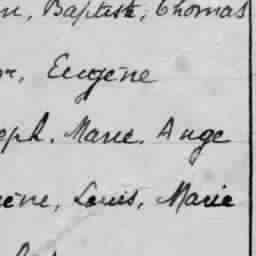 Baptiste, Thomas
Eugène
Marie. Ange
Louis, Marie